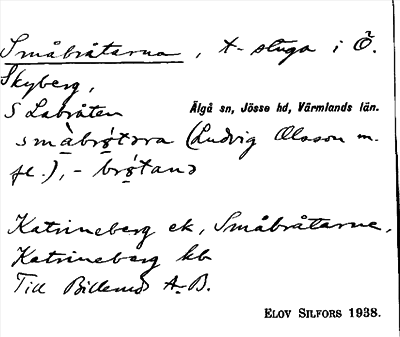 Småbråtarna, t-stuga i Ö.
Skyberg,
S Labråten Älgå sn, Jösse hd, Värmlands län.
småbrötɔra (Ludvig Olsson m.
fl.), - brötanɔ
Katrineberg ek, Småbråtarne,
Katrineberg kb
Till Billerud A.B.
ELOV SILFORS 1938.